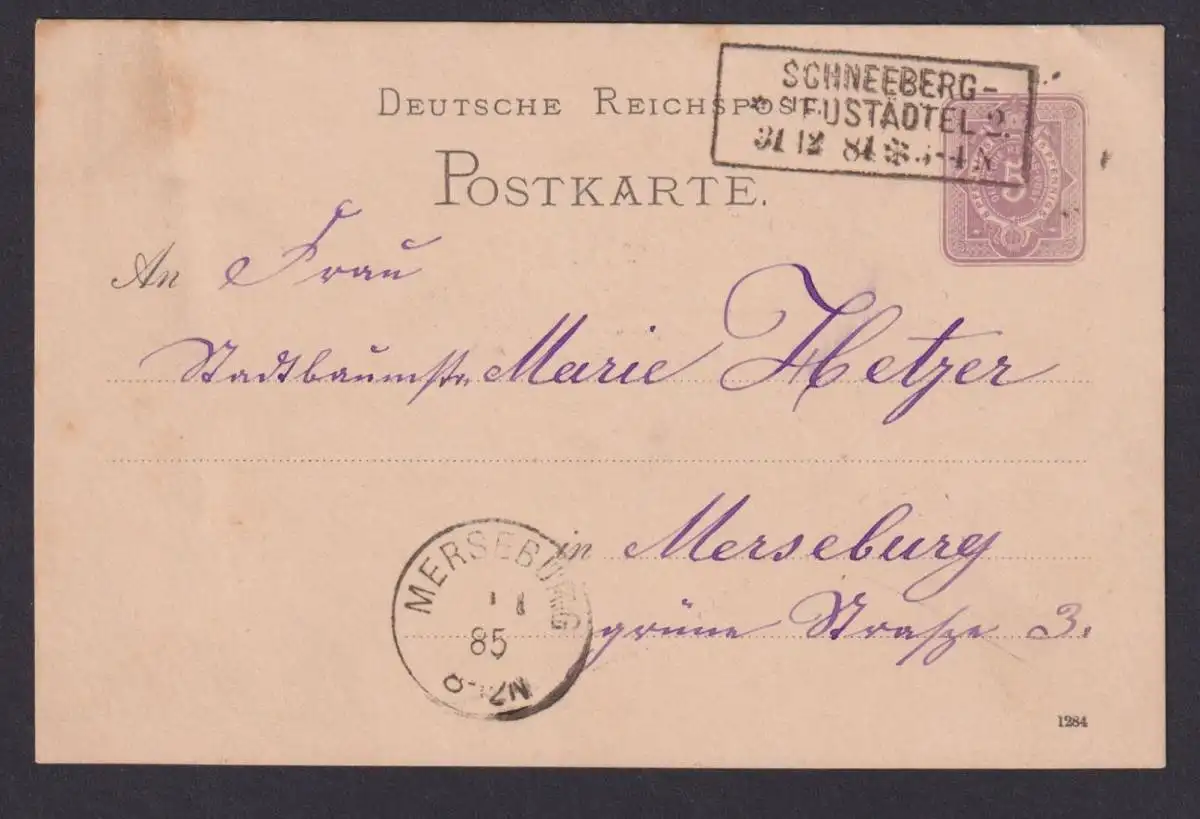 DEUTSCHE REICHSPOST
SCHNEEBERG-
NEUSTÄDTEL 2.
31 12 84 4 N
POSTKARTE.
5
An Frau
Stadtbaumstr. Marie Hetzer
in Merseburg
grüne Straße 3.
MERSEBURG
1 1
85
N 7-8
1284